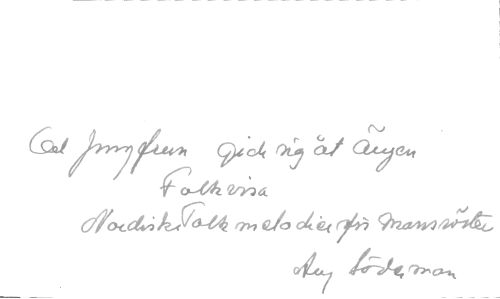 Jungfrun gick sig åt ängen
Folkvisa
Nordiska Folkmelodier för Mansröster
Aug Söderman